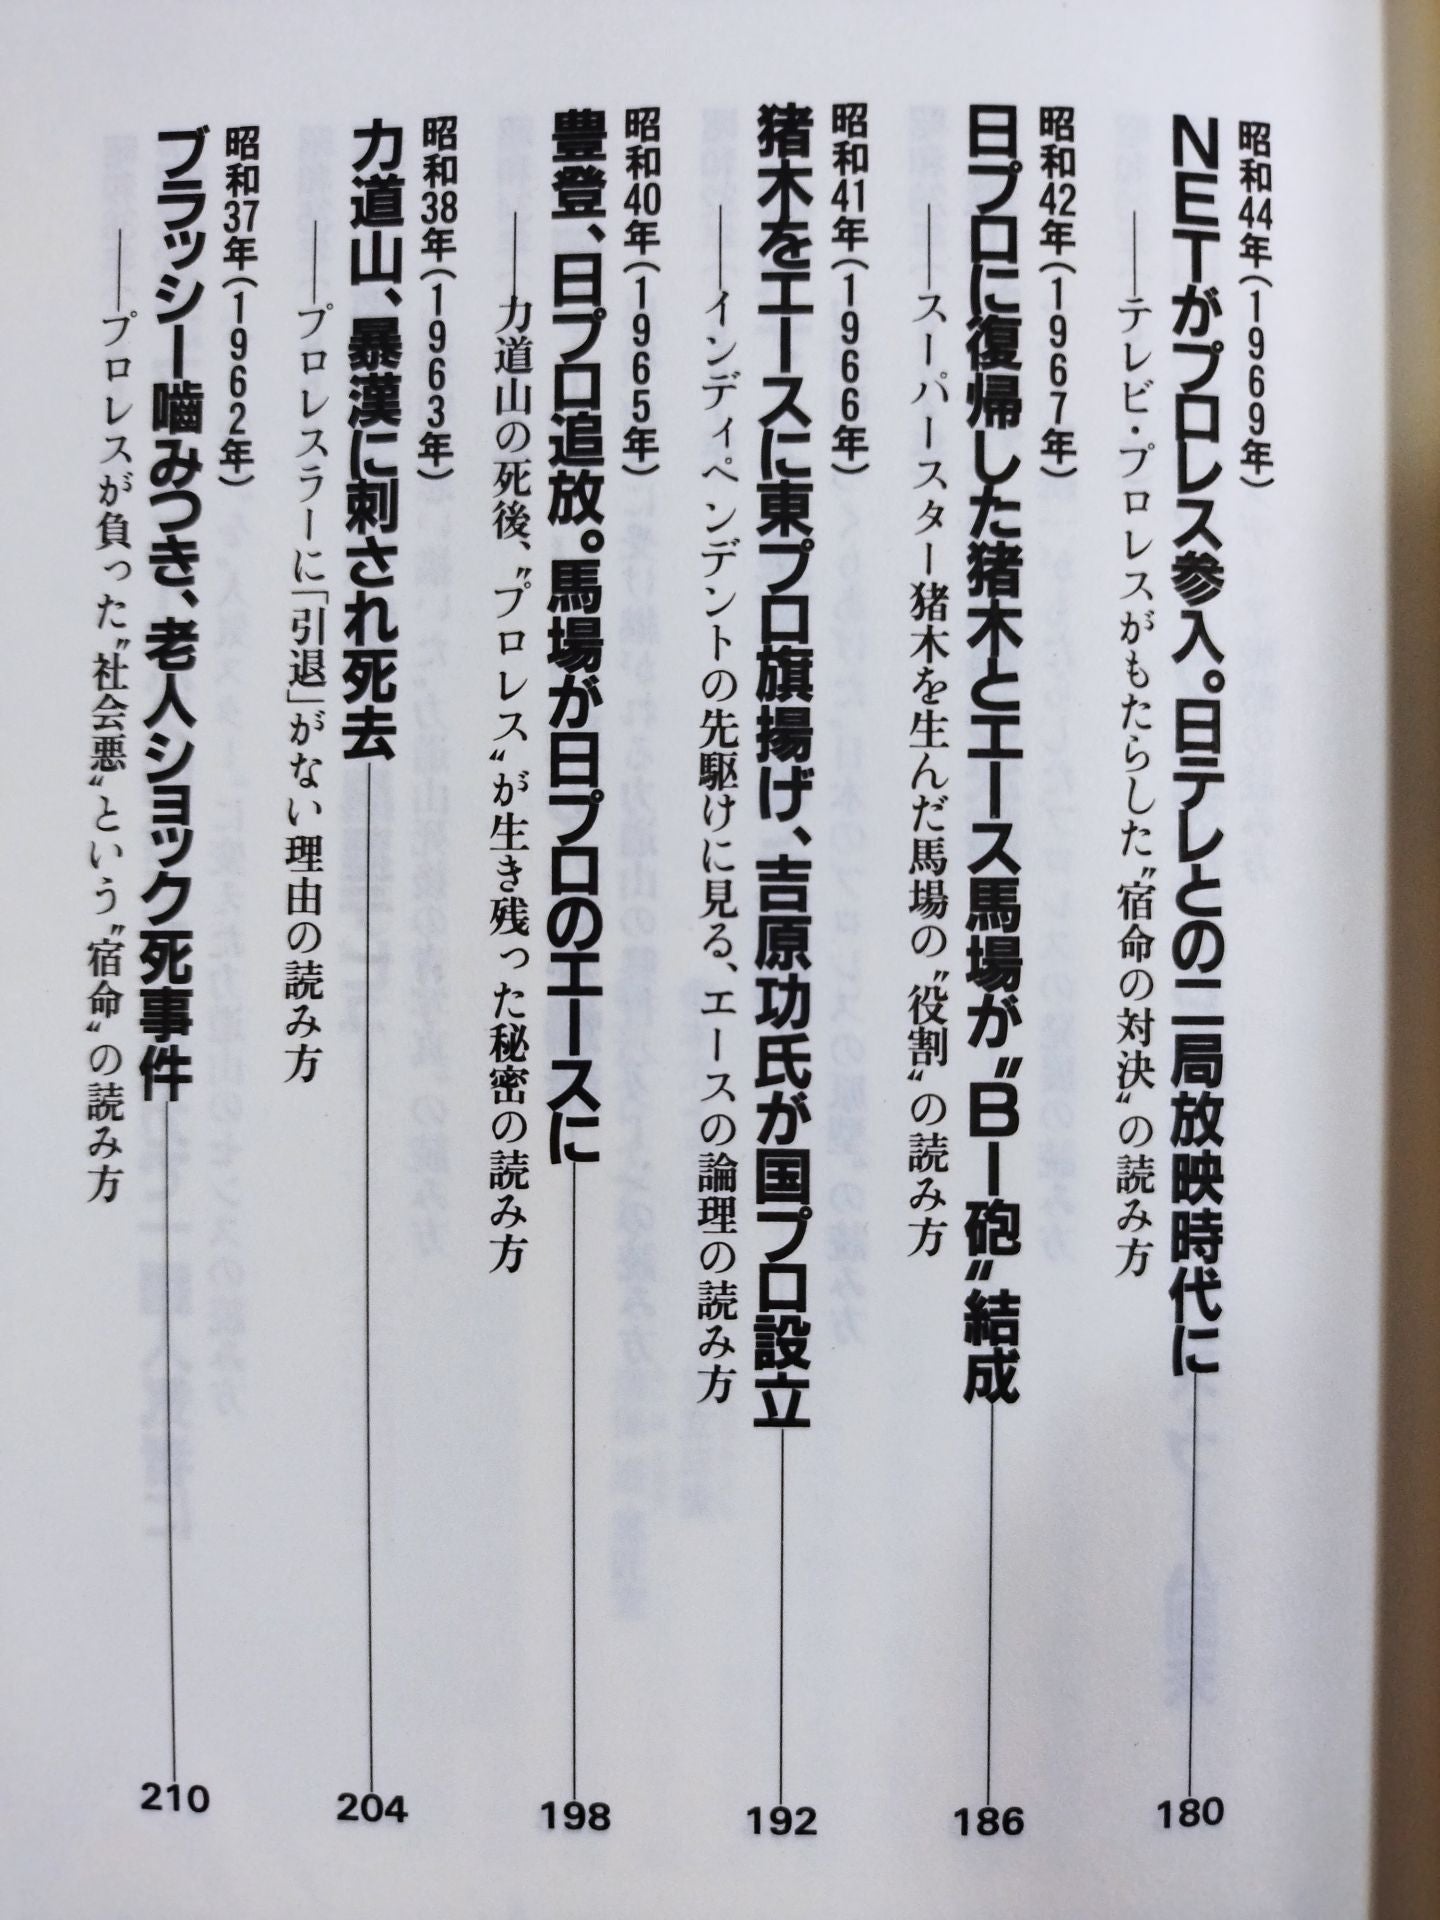 昭和44年(1969年)
NETがプロレス参入。日テレとの二局放映時代に
――テレビ・プロレスがもたらした〝宿命の対決〟の読み方
180
昭和42年(1967年)
日プロに復帰した猪木とエース馬場が〝BI砲〟結成
――スーパースター猪木を生んだ馬場の〝役割〟の読み方
186
昭和41年(1966年)
猪木をエースに東プロ旗揚げ、吉原功氏が国プロ設立
――インディペンデントの先駆けに見る、エースの論理の読み方
192
昭和40年(1965年)
豊登、日プロ追放。馬場が日プロのエースに
――力道山の死後、〝プロレス〟が生き残った秘密の読み方
198
昭和38年(1963年)
力道山、暴漢に刺され死去
――プロレスラーに「引退」がない理由の読み方
204
昭和37年(1962年)
ブラッシー噛みつき、老人ショック死事件
――プロレスが負った〝社会悪〟という〝宿命〟の読み方
210